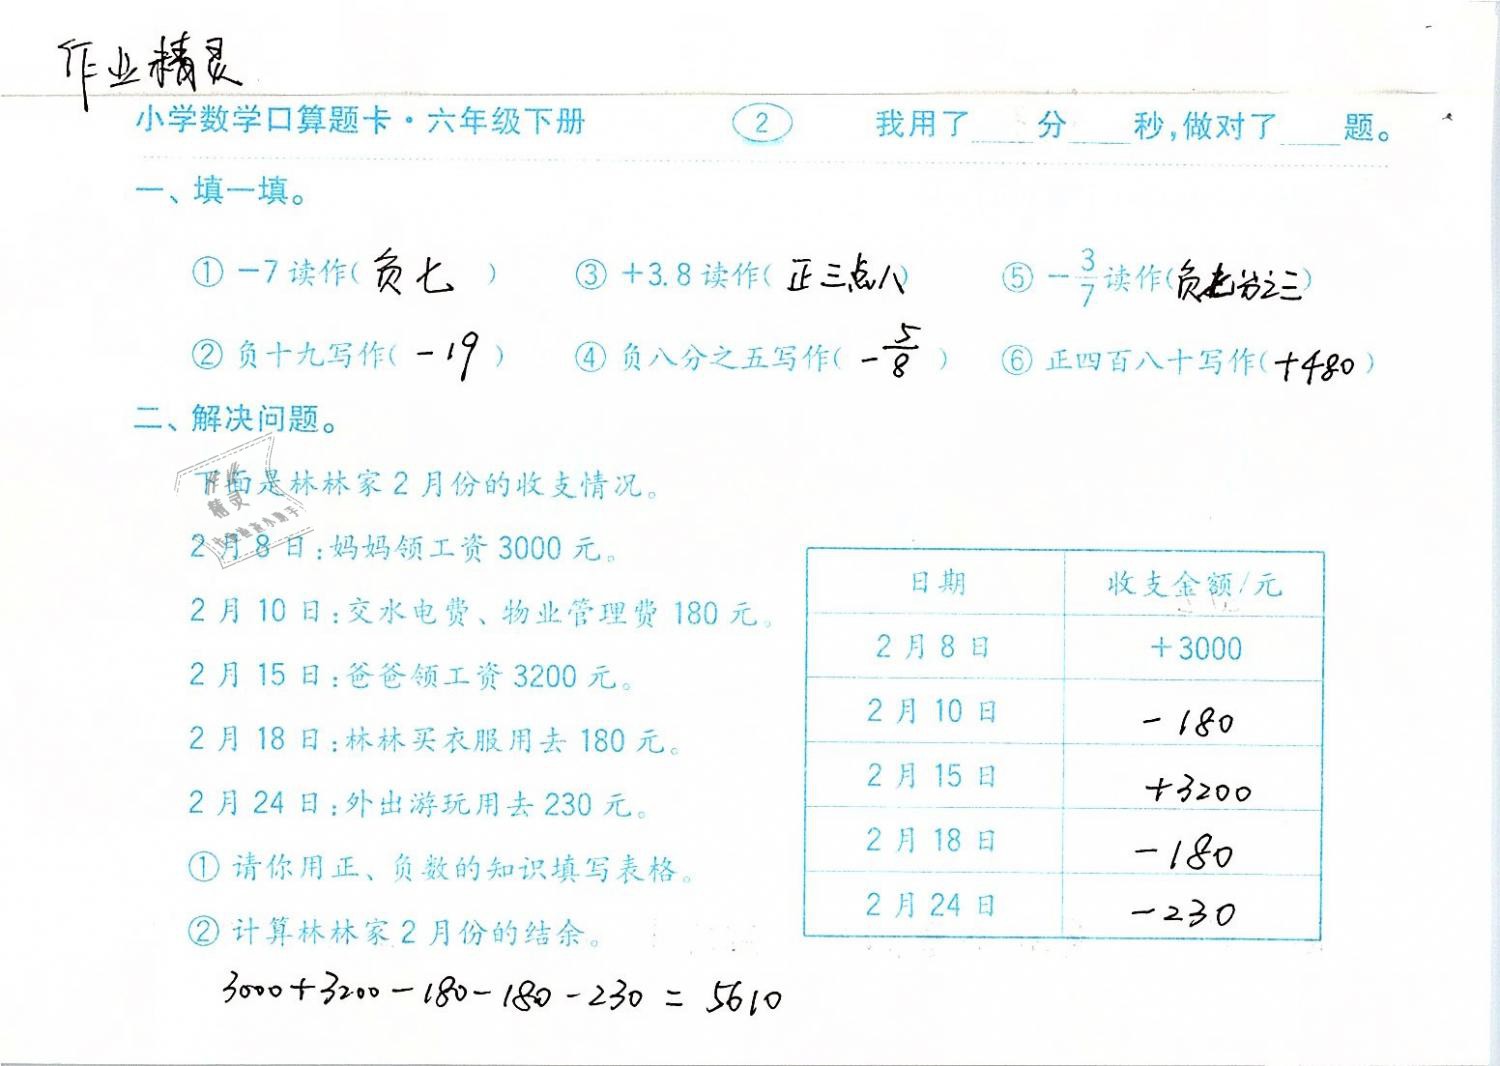 作业精灵
小学数学口算题卡·六年级下册 2 我用了____分____秒,做对了____题。
一、填一填。
① －7读作( 负七 ) ③ ＋3.8读作( 正三点八 ) ⑤ －3/7读作(负七分之三)
② 负十九写作( －19 ) ④ 负八分之五写作( －5/8 ) ⑥ 正四百八十写作(＋480)
二、解决问题。
下面是林林家2月份的收支情况。
2月8日:妈妈领工资3000元。
2月10日:交水电费、物业管理费180元。
2月15日:爸爸领工资3200元。
2月18日:林林买衣服用去180元。
2月24日:外出游玩用去230元。
① 请你用正、负数的知识填写表格。
② 计算林林家2月份的结余。
3000+3200－180－180－230＝5610
日期 收支金额/元
2月8日 ＋3000
2月10日 －180
2月15日 ＋3200
2月18日 －180
2月24日 －230
作业
精灵